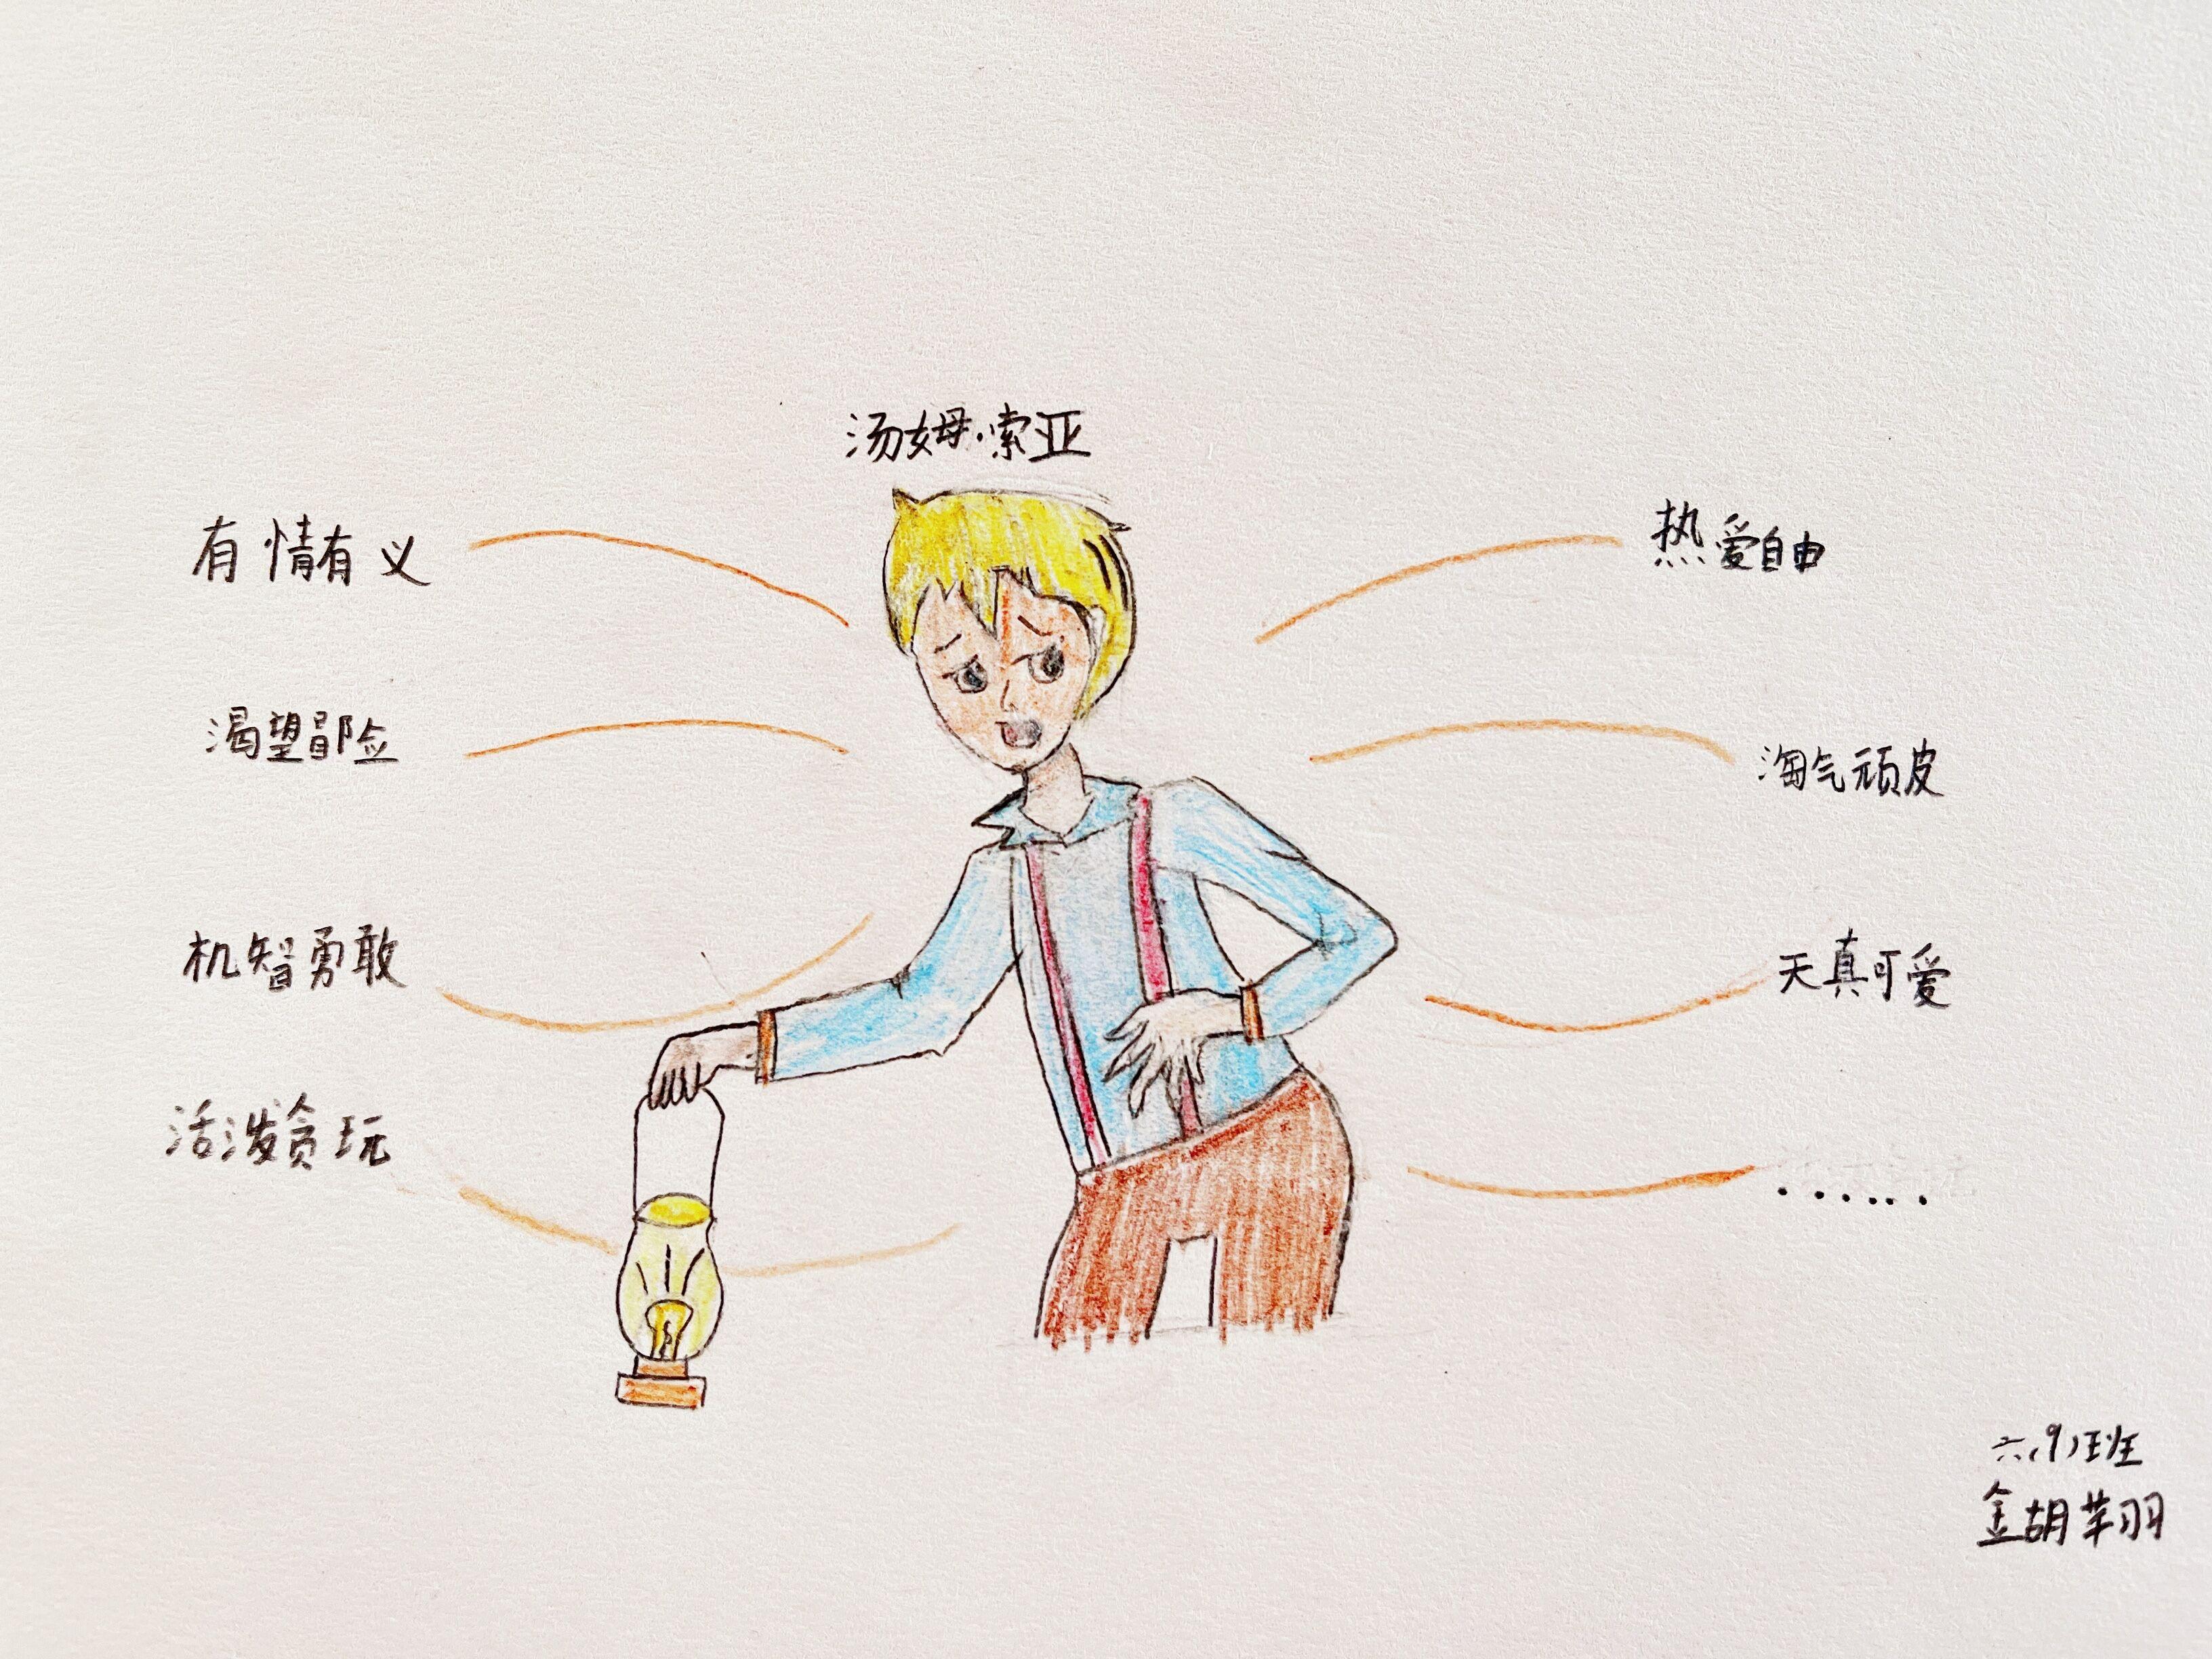 汤姆·索亚
有情有义
渴望冒险
机智勇敢
活泼贪玩
热爱自由
淘气顽皮
天真可爱
······
六(9)班
金胡芈羽